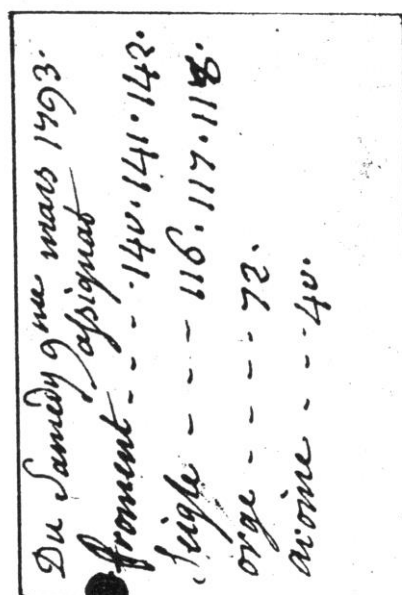 Du Samedy 9me mars 1793.
assignat
froment - - - 140. 141. 142.
Seigle - - - - 116. 117. 118.
orge - - - - - 72.
avoine - - - 40.